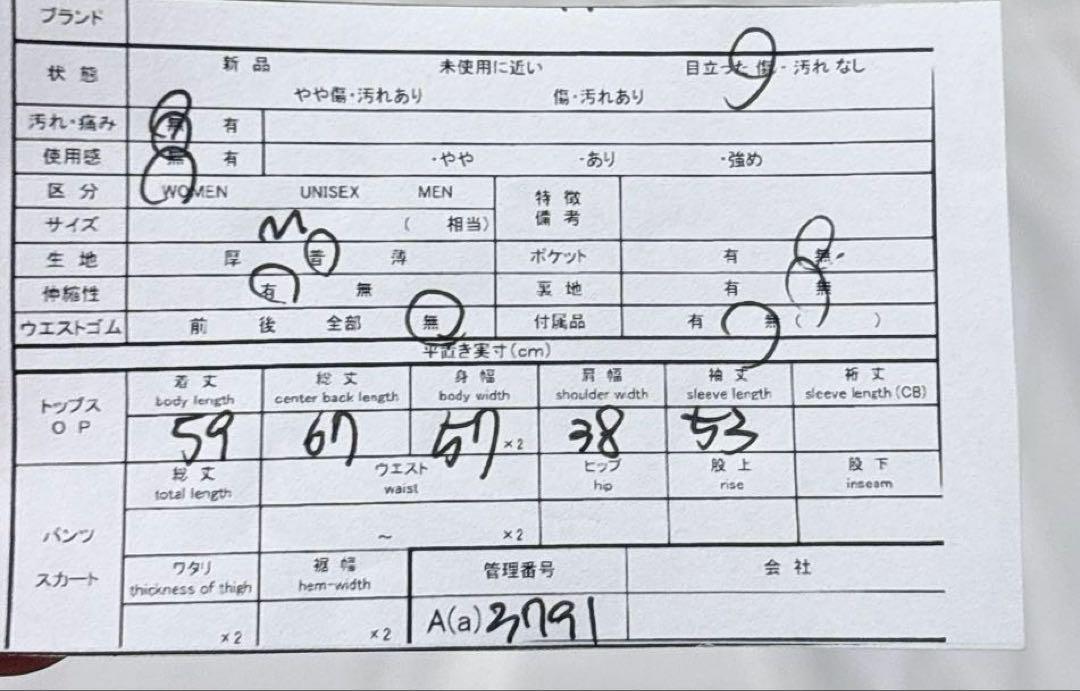 ブランド
状態 新品 未使用に近い 目立った 傷・汚れ なし
やや傷・汚れあり 傷・汚れあり
汚れ・痛み 無 有
使用感 無 有 ・やや ・あり ・強め
区分 WOMEN UNISEX MEN 特徴
備考
サイズ M ( 相当)
生地 厚 普 薄 ポケット 有 無
伸縮性 有 無 裏地 有 無
ウエストゴム 前 後 全部 無 付属品 有 無 ( )
平置き実寸(cm)
トップス
OP
着丈 総丈 身幅 肩幅 袖丈 裄丈
body length center back length body width shoulder width sleeve length sleeve length (CB)
59 67 57 ×2 38 53
パンツ
スカート
総丈 ウエスト ヒップ 股上 股下
total length waist hip rise inseam
~ ×2
ワタリ 裾幅 管理番号 会社
thickness of thigh hem-width
×2 ×2 A(a) 3791